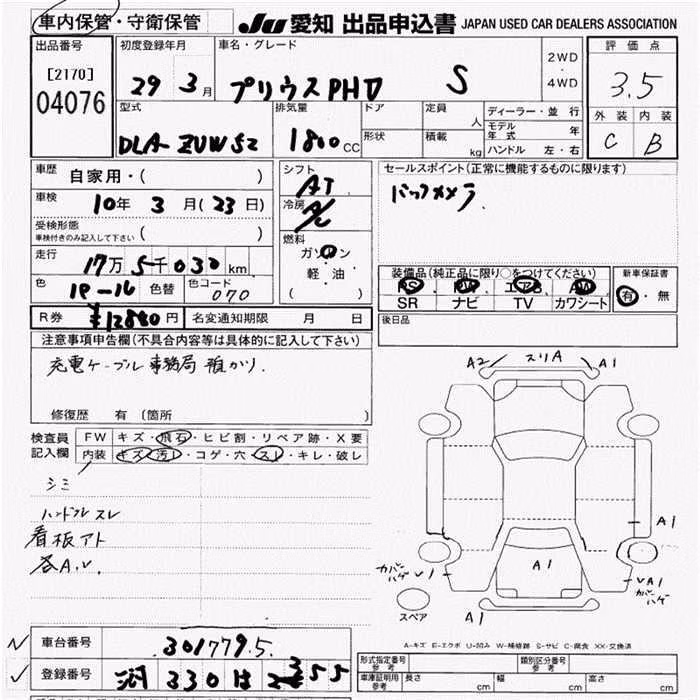 車内保管・守衛保管
JU 愛知 出品申込書 JAPAN USED CAR DEALERS ASSOCIATION
出品番号
[2170]
04076
初度登録年月
29 3月
車名・グレード
プリウスPHV S
2WD
・
4WD
評価点
3.5
外装 内装
C B
型式
DLA-ZVW52
排気量
1800 CC
ドア
形状
定員
人
積載
kg
ディーラー・並行
モデル年式 年
ハンドル 左・右
車歴
自家用・( )
車検
10年 3月(23日)
受検形態
車検付きのみ記入して下さい ( )
走行
17万5千030km
色
色替
色コード
070
R券
¥12880円
名変通知期限 月 日
シフト
AT
冷房
A/C
燃料
ガソリン
軽・油
( )
セールスポイント(正常に機能するものに限ります)
バックカメラ
装備品(純正品に限り○をつけてください)
PS PW エアB AW
SR ナビ TV カワシート
新車保証書
有・無
後日品
注意事項申告欄(不具合内容等は具体的に記入して下さい)
充電ケーブル 事務局 預かり.
修復歴 有(箇所 )
検査員
記入欄
FW キズ・飛石・ヒビ割・リペア跡・X要
内装 キズ・汚レ・コゲ・穴・スレ・キレ・破レ
シミ
ハンドルスレ
看板アト
各A.U.
A2 スリA A1
A1
A1
カバーハゲ
A1
カバーハゲ
A1
スペア
A-キズ E-エクボ U-凹み W-補修跡 S-サビ C-腐食 XX-交換済
車台番号
3017795.
登録番号
330 は
55
形式指定番号
参考
類別区分番号
参考
車庫証明用
参考
長さ cm
幅 cm
高さ cm